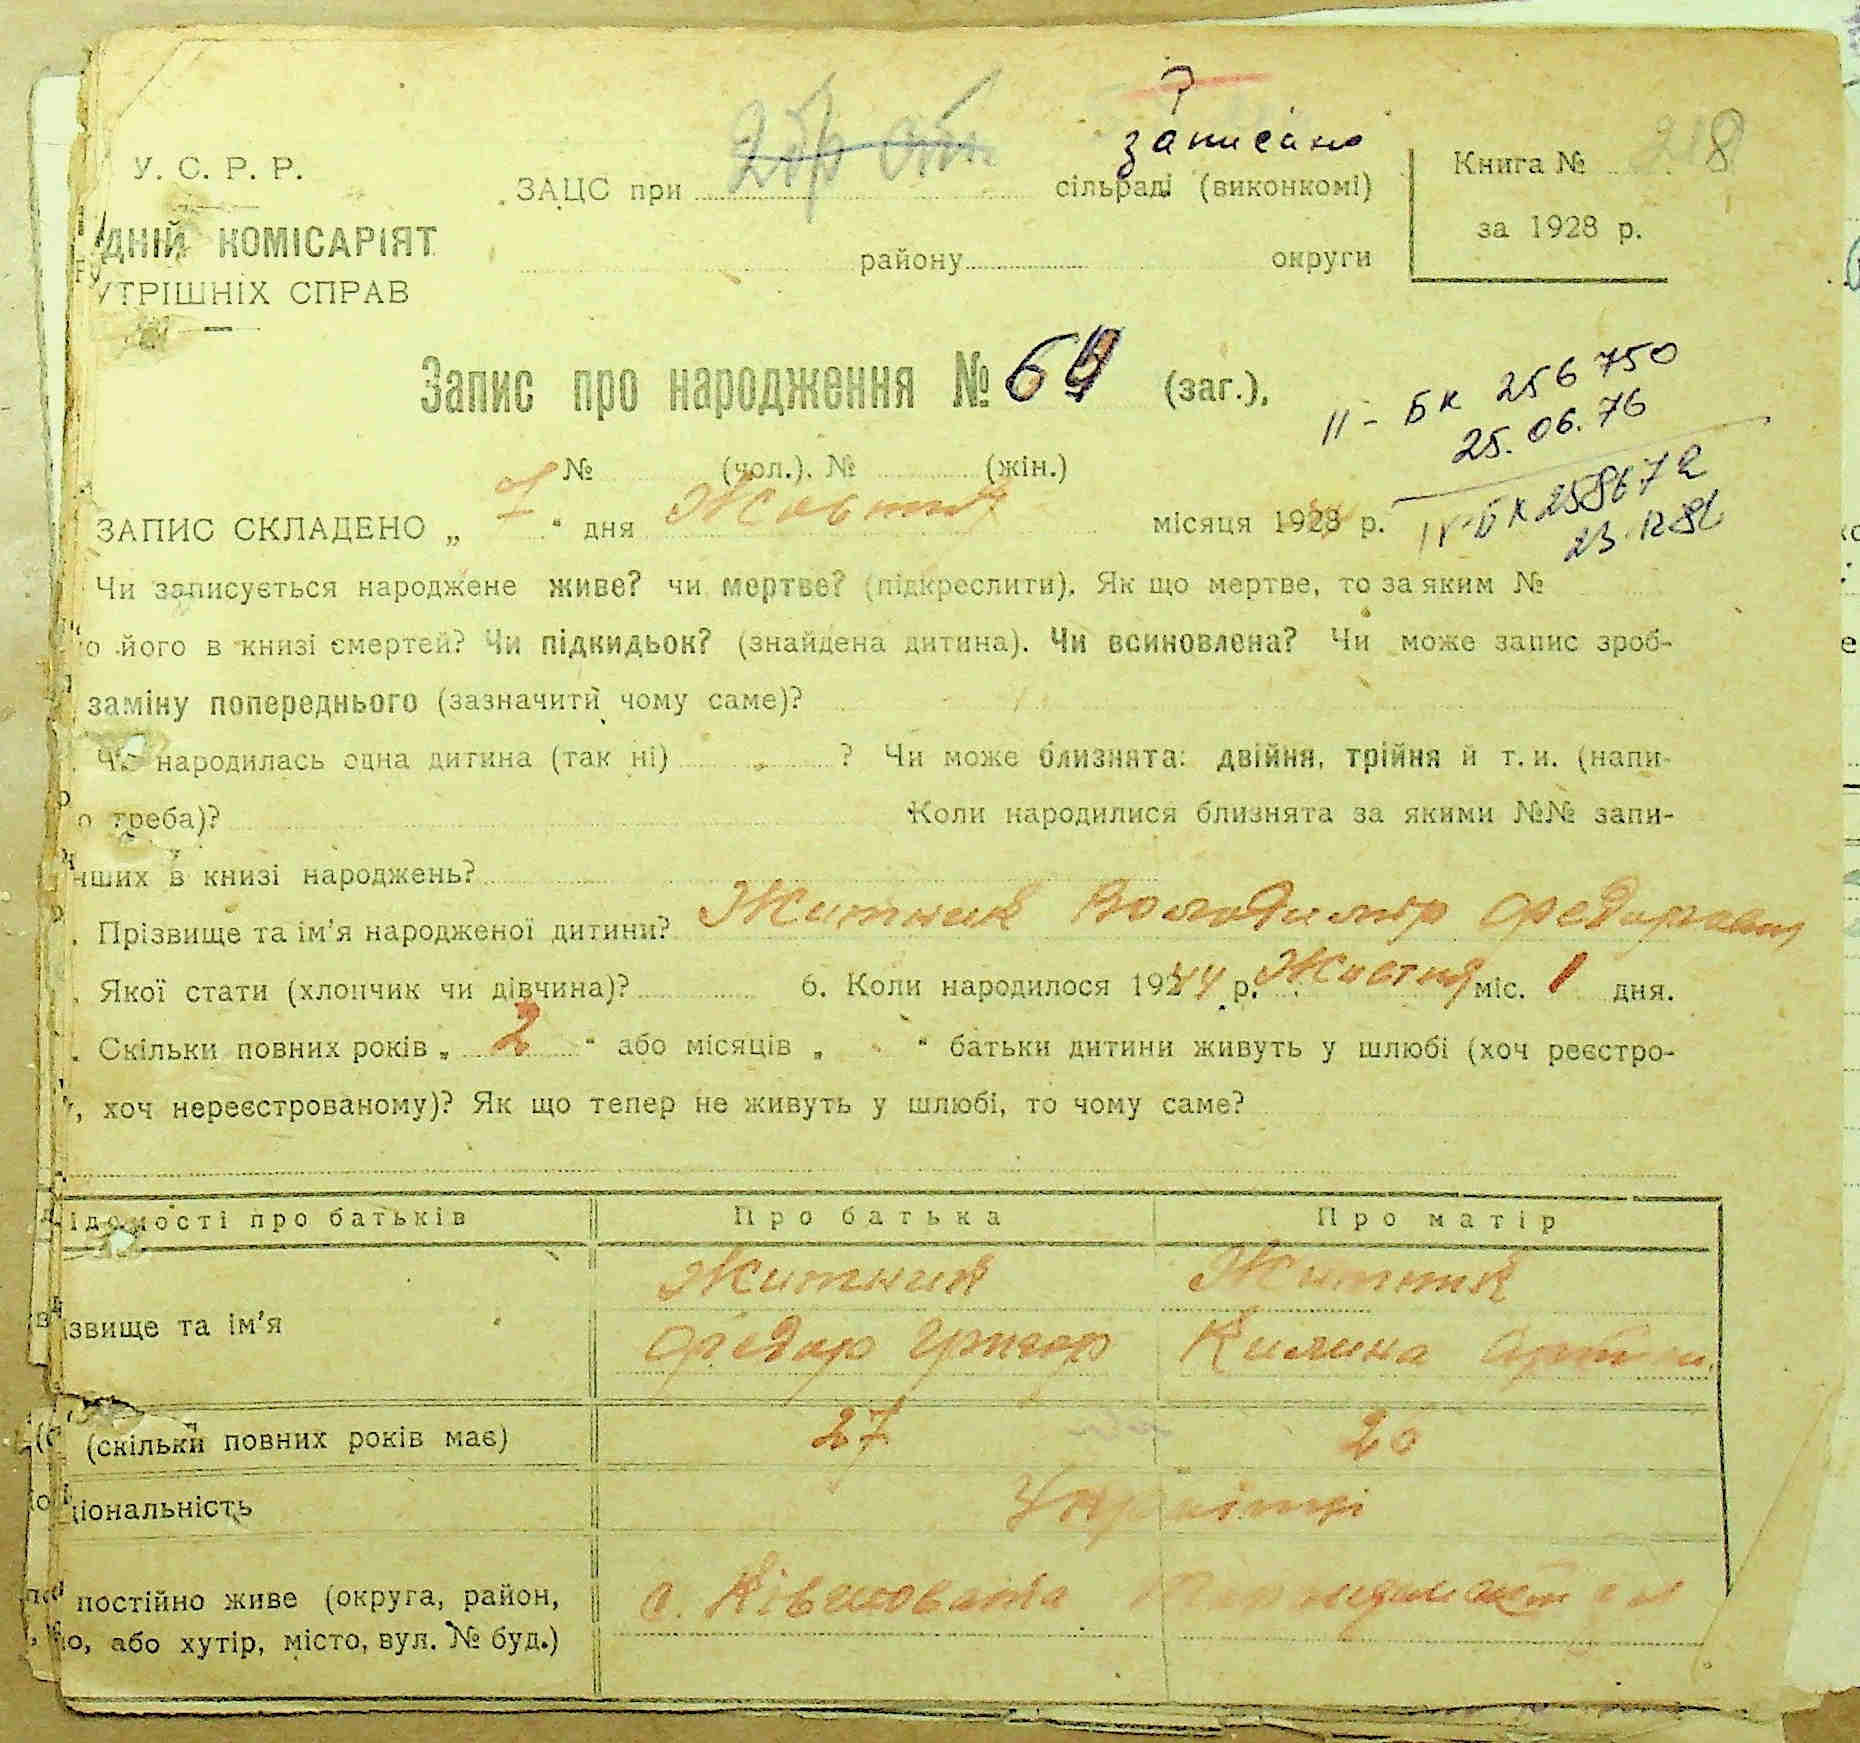 У. С. Р. Р.
ДНІЙ КОМІСАРІЯТ
УТРІШНІХ СПРАВ
ЗАЦС при сільраді (виконкомі)
записано
району округи
Книга № 218
за 1928 р.
Запис про народження № 69 (заг.).
II - БК 256750
25.06.76
№ (чол.). № (жін.)
ЗАПИС СКЛАДЕНО „ “ дня Жовтня місяця 1928 р.
IV-БК 258672
Чи записується народжене живе? чи мертве? (підкреслити). Як що мертве, то за яким №
о його в книзі смертей? Чи підкидьок? (знайдена дитина). Чи всиновлена? Чи може запис зроб-
заміну попереднього (зазначити чому саме)?
Чи народилась одна дитина (так ні) ? Чи може близнята: двійня, трійня й т. и. (напи-
о треба)? Коли народилися близнята за якими №№ запи-
нших в книзі народжень?
. Прізвище та ім’я народженої дитини? Житник Володимир Федорович
. Якої стати (хлопчик чи дівчина)? 6. Коли народилося 1944 р. Жовтня міс. 1 дня.
. Скільки повних років „ 2 “ або місяців „ “ батьки дитини живуть у шлюбі (хоч реєстро-
, хоч нереєстрованому)? Як що тепер не живуть у шлюбі, то чому саме?
ідомості про батьків Про батька Про матір
Житник Житник
ізвище та ім’я
Федор Григор Килина Артем.
(скільки повних років має) 27 26
ціональність Українці
постійно живе (округа, район, с. Ківшовата
о, або хутір, місто, вул. № буд.)